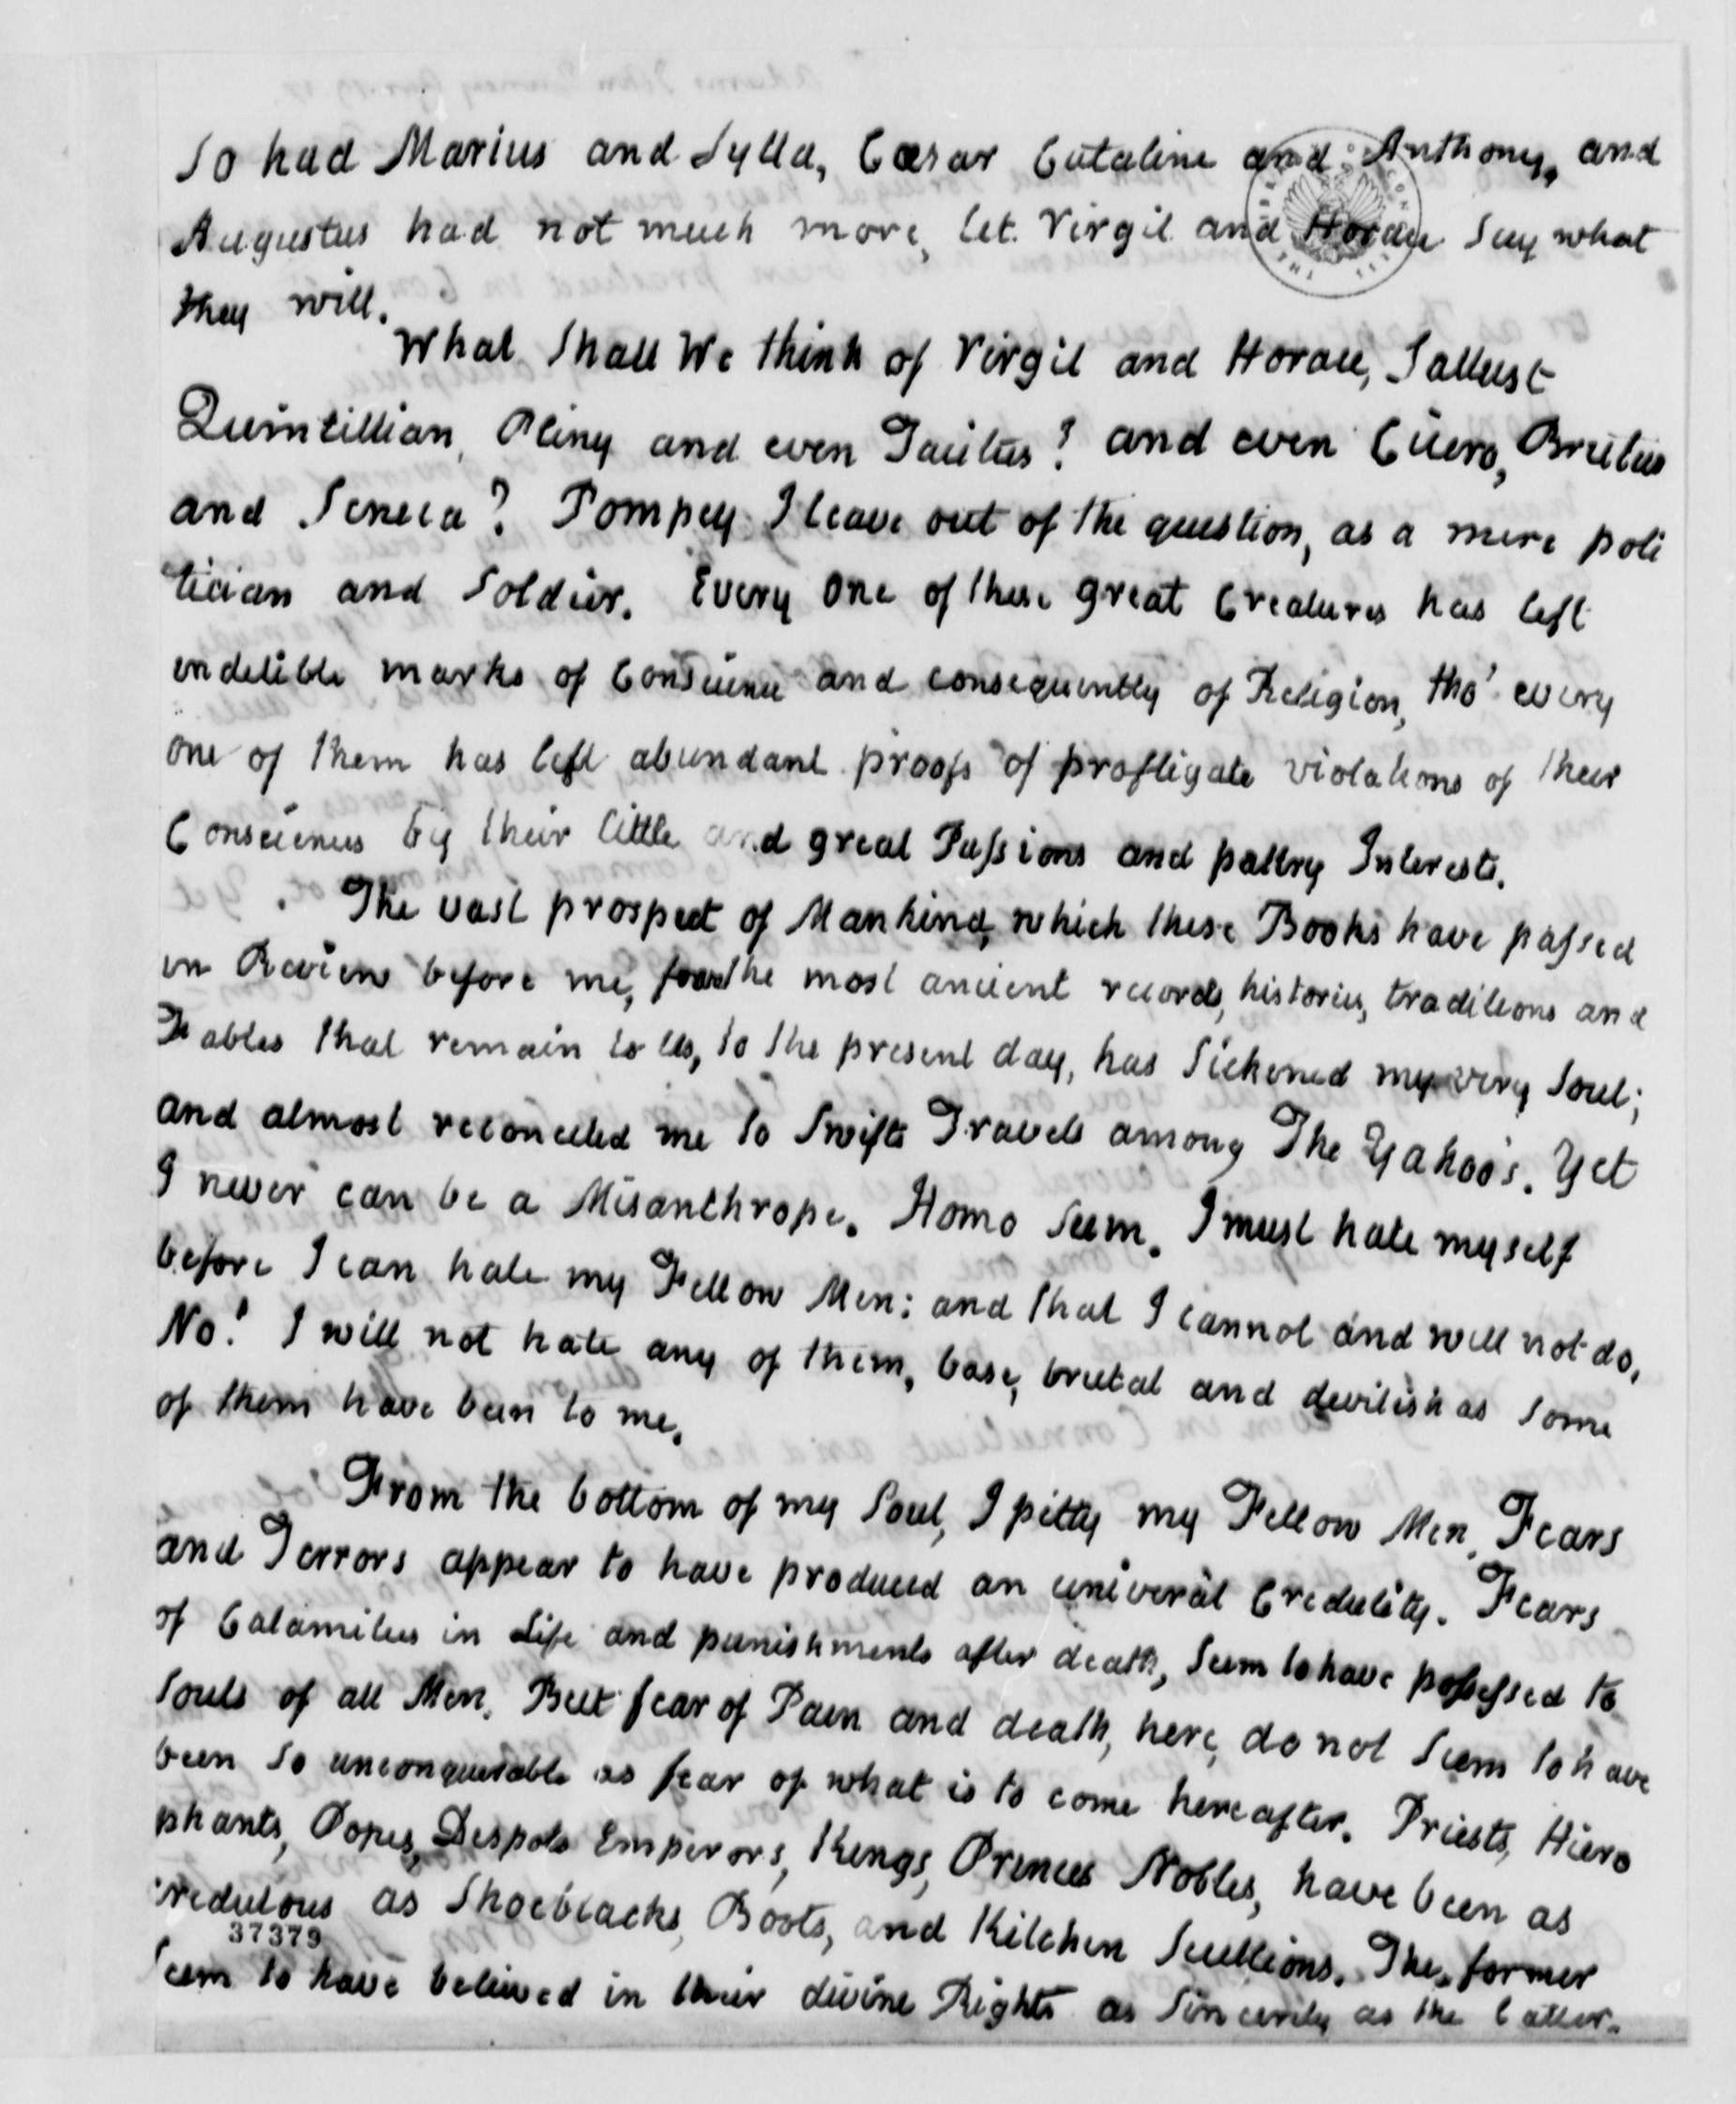 So had Marius and Sylla, Cæsar Cataline and Anthony, and
Augustus had not much more, let Virgil and Horace Say what
they will.
What Shall We think of Virgil and Horace, Sallust
Quintillian, Pliny and even Tacitus? and even Cicero, Brutus
and Seneca? Pompey I leave out of the question, as a mere poli
tician and Soldier. Every one of these great Creatures has left
indelible marks of Conscience and consequently of Religion, tho' every
one of them has left abundant proofs of profligate violations of their
Consciences by their little and great Passions and paltry Interests.
The vast prospect of Mankind, which these Books have passed
in Review before me, from the most ancient records, histories, traditions and
Fables that remain to Us, to the present day, has Sickened my very Soul;
and almost reconciled me to Swifts Travels among The Yahoo's. Yet
I never can be a Misanthrope. Homo Sum. I must hate myself
before I can hate my Fellow Men: and that I cannot and will not do.
No! I will not hate any of them, base, brutal and devilish as Some
of them have been to me.
From the bottom of my Soul, I pitty my Fellow Men. Fears
and Terrors appear to have produced an univeral Credulity. Fears
of Calamities in Life and punishments after death, Seem to have possessed to
Souls of all Men. But fear of Pain and death, here, do not Seem to have
been So unconquerable as fear of what is to come hereafter. Priests, Hiero
phants, Popes, Despots Emperors, Kings, Princes Nobles, have been as
credulous as Shoeblacks, Boots, and Kitchen Scullions. The former
37379
Seem to have believed in their divine Rights as Sincerely as the latter.